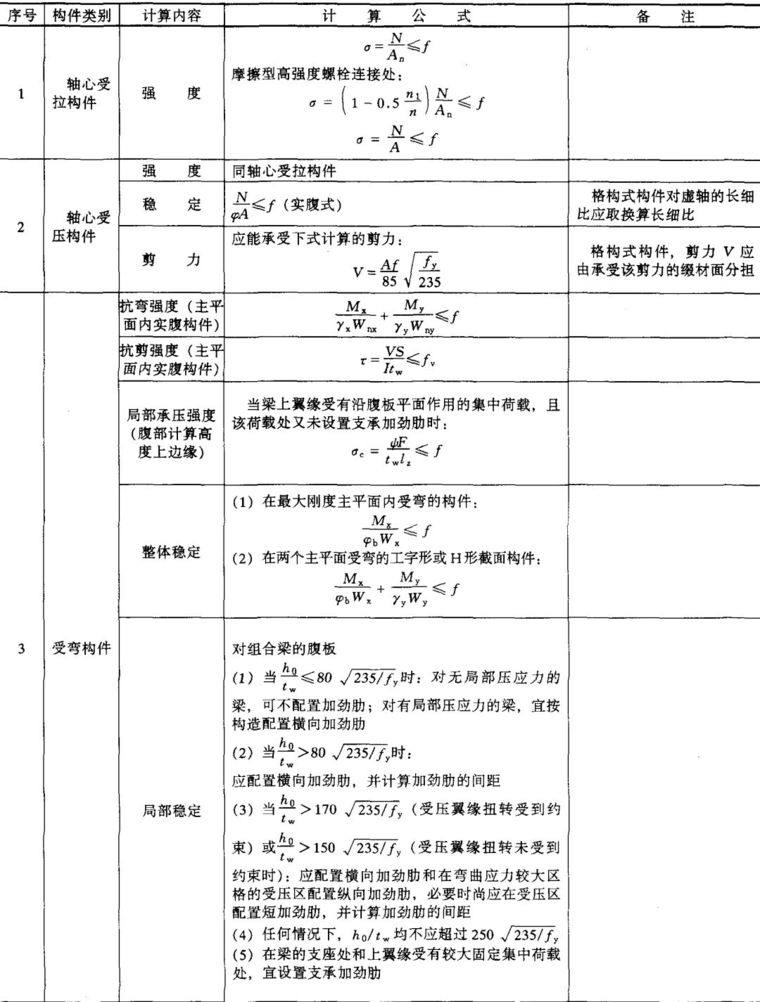 序号 构件类别 计算内容 计 算 公 式 备 注
1 轴心受拉构件 强 度
σ = N/Aₙ ≤ f
摩擦型高强度螺栓连接处：
σ = (1 − 0.5 n₁/n) N/Aₙ ≤ f
σ = N/A ≤ f
2 轴心受压构件
强 度 同轴心受拉构件
稳 定 N/φA ≤ f（实腹式） 格构式构件对虚轴的长细
比应取换算长细比
剪 力 应能承受下式计算的剪力：
V = Af/85 √(f_y/235)
格构式构件，剪力 V 应
由承受该剪力的缀材面分担
3 受弯构件
抗弯强度（主平
面内实腹构件）
M_x/(γ_x W_nx) + M_y/(γ_y W_ny) ≤ f
抗剪强度（主平
面内实腹构件）
τ = VS/(It_w) ≤ f_v
局部承压强度
（腹部计算高
度上边缘）
当梁上翼缘受有沿腹板平面作用的集中荷载，且
该荷载处又未设置支承加劲肋时：
σ_c = ψF/(t_w l_z) ≤ f
整体稳定
(1) 在最大刚度主平面内受弯的构件：
M_x/(φ_b W_x) ≤ f
(2) 在两个主平面受弯的工字形或 H 形截面构件：
M_x/(φ_b W_x) + M_y/(γ_y W_y) ≤ f
局部稳定
对组合梁的腹板
(1) 当 h₀/t_w ≤ 80 √(235/f_y) 时：对无局部压应力的
梁，可不配置加劲肋；对有局部压应力的梁，宜按
构造配置横向加劲肋
(2) 当 h₀/t_w > 80 √(235/f_y) 时：
应配置横向加劲肋，并计算加劲肋的间距
(3) 当 h₀/t_w > 170 √(235/f_y)（受压翼缘扭转受到约
束）或 h₀/t_w > 150 √(235/f_y)（受压翼缘扭转未受到
约束时）：应配置横向加劲肋和在弯曲应力较大区
格的受压区配置纵向加劲肋，必要时尚应在受压区
配置短加劲肋，并计算加劲肋的间距
(4) 任何情况下，h₀/t_w 均不应超过 250 √(235/f_y)
(5) 在梁的支座处和上翼缘受有较大固定集中荷载
处，宜设置支承加劲肋